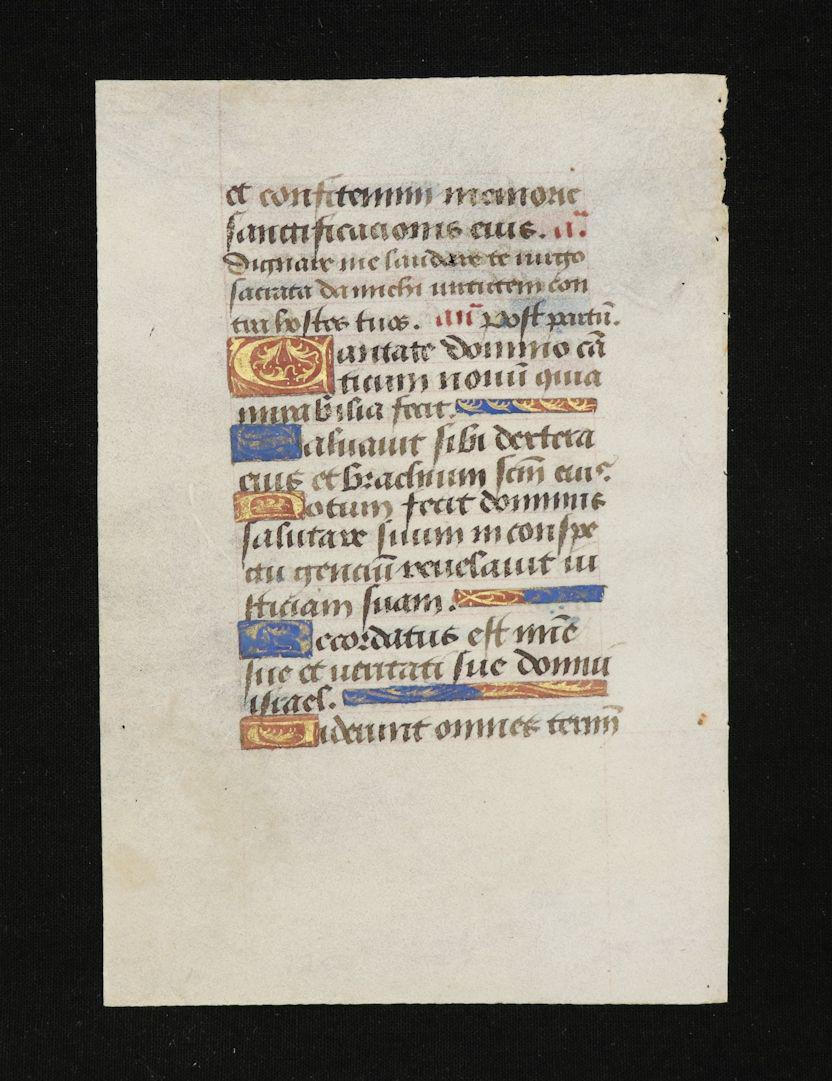 et confitemini memorie
sanctificacionis eius. añ.
Dignare me laudare te uirgo
sacrata da michi uirtutem con
tra hostes tuos. añ post partū.
Cantate domino cā
ticum nouū quia
mirabilia fecit.
Saluauit sibi dextera
eius et brachium scm̄ eius.
Notum fecit dominus
salutare suum in conspe
ctu genciū reuelauit iu
sticiam suam.
Recordatus est mīe
sue et ueritati sue domui
israel.
Viderunt omnes termī